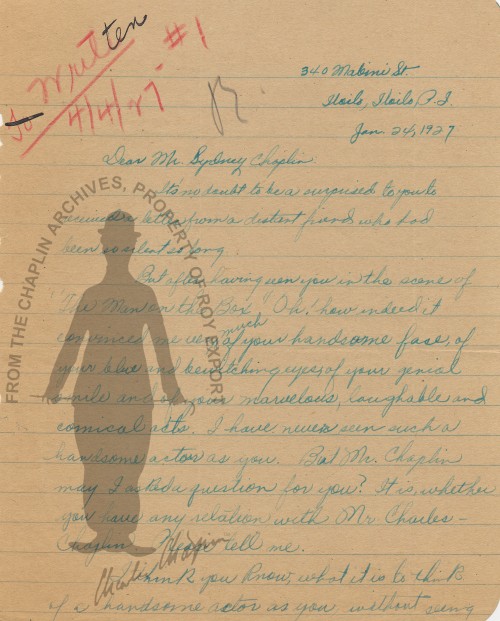 To Written #1
4/4/27
R.
340 Mabini St.
Iloilo, Iloilo P.I.
Jan. 24, 1927
Dear Mr. Sydney Chaplin
It's no doubt to be a surprised to you to
received a letter from a distant friend who had
been so silent so long.
But after having seen you in the scene of
"The Man on the Box" Oh! how indeed it
convinced me very much of your handsome face, of
your blue and bewitching eyes, of your genial
smile and of your marvelous, laughable and
comical acts. I have never seen such a
handsome actor as you. But Mr. Chaplin
may I asked a question for you? It is, whether
you have any relation with Mr Charles-
Chaplin. Please tell me.
I think you know, what it is to think
of a handsome actor as you without seing
FROM THE CHAPLIN ARCHIVES, PROPERTY OF ROY EXPORT
Charlie Chaplin